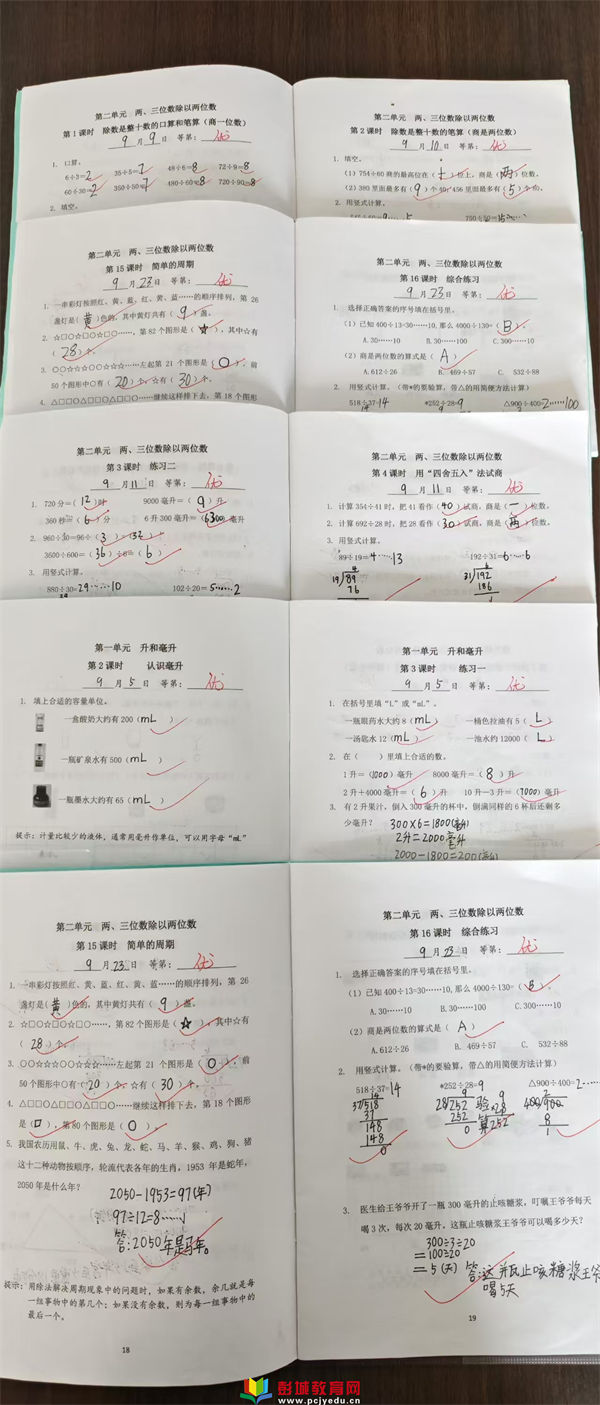 第二单元 两、三位数除以两位数
第1课时 除数是整十数的口算和笔算（商一位数）
9月9日 等第：优
1. 口算。
6÷3=2 35÷5=7 48÷6=8 72÷9=8
60÷30=2 350÷50=7 480÷60=8 720÷90=8
2. 填空。
第二单元 两、三位数除以两位数
第2课时 除数是整十数的笔算（商是两位数）
9月10日 等第：优
1. 填空。
（1）754÷60商的最高位在（十）位上，商是（两）位数。
（2）380里面最多有（9）个40，456里面最多有（5）个
2. 用竖式计算。
第二单元 两、三位数除以两位数
第15课时 简单的周期
9月23日 等第：优
1. 一串彩灯按照红、黄、蓝、红、黄、蓝……的顺序排列，第26
盏灯是（黄）色的，其中黄灯共有（9）盏。
2. ☆□□☆□□☆□□……，第82个图形是（☆），其中☆有
（28）个。
3. ○○☆☆☆○○☆☆☆……左起第21个图形是（○），前
50个图形中○有（20）个，☆有（30）个。
4. △□□○△□□○△□□○……继续这样排下去，第18个图形
第二单元 两、三位数除以两位数
第16课时 综合练习
9月23日 等第：优
1. 选择正确答案的序号填在括号里。
（1）已知400÷13=30……10，那么4000÷130=（B）。
A.30……10 B.30……100 C.300……10
（2）商是两位数的算式是（A）
A.612÷26 B.469÷57 C.532÷88
2. 用竖式计算。（带*的要验算，带△的用简便方法计算）
518÷37=14 *252÷28=9 △900÷400=2……100
第二单元 两、三位数除以两位数
第3课时 练习二
9月11日 等第：优
1. 720分=（12）时 9000毫升=（9）升
360秒=（6）分 6升300毫升=（6300）毫升
2. 960÷30=96÷（3）=（32）
3600÷600=（36）÷6=（6）
3. 用竖式计算。
880÷30=29……10 102÷20=5……2
第二单元 两、三位数除以两位数
第4课时 用“四舍五入”法试商
9月11日 等第：优
1. 计算354÷41时，把41看作（40）试商，商是（一）位数。
2. 计算692÷28时，把28看作（30）试商，商是（两）位数。
3. 用竖式计算。
89÷19=4……13 192÷31=6……6
4 6
19 89 31 192
76 186
第一单元 升和毫升
第2课时 认识毫升
9月5日 等第：优
1. 填上合适的容量单位。
一盒酸奶大约有200（mL）
一瓶矿泉水有500（mL）
一瓶墨水大约有65（mL）
提示：计量比较少的液体，通常用毫升作单位，可以用字母“mL”
第一单元 升和毫升
第3课时 练习一
9月5日 等第：优
1. 在括号里填“L”或“mL”。
一瓶眼药水大约8（mL） 一桶色拉油有5（L）
一汤匙水12（mL） 一池水约12000（L）
2. 在（ ）里填上合适的数。
1升=（1000）毫升 8000毫升=（8）升
2升+4000毫升=（6）升 10升-3升=（7000）毫升
3. 有2升果汁，倒入300毫升的杯中，倒满同样的6杯后还剩多
少毫升？
300×6=1800(毫升)
2升=2000毫升
2000-1800=200(毫升)
第二单元 两、三位数除以两位数
第15课时 简单的周期
9月23日 等第：优
1. 一串彩灯按照红、黄、蓝、红、黄、蓝……的顺序排列，第26
盏灯是（黄）色的，其中黄灯共有（9）盏。
2. ☆□□☆□□☆□□……，第82个图形是（☆），其中☆有
（28）个。
3. ○○☆☆☆○○☆☆☆……左起第21个图形是（○），前
50个图形中○有（20）个，☆有（30）个。
4. △□□○△□□○△□□○……继续这样排下去，第18个图形
是（□），第80个图形是（○）。
5. 我国农历用鼠、牛、虎、兔、龙、蛇、马、羊、猴、鸡、狗、猪
这十二种动物按顺序，轮流代表各年的生肖，1953年是蛇年，
2050年是什么年？
2050-1953=97(年)
97÷12=8……1
答：2050年是马年。
提示：用除法解决周期现象中的问题时，如果有余数，余几就是每
一组事物中的第几个；如果没有余数，则为每一组事物中的
最后一个。
18
第二单元 两、三位数除以两位数
第16课时 综合练习
9月23日 等第：优
1. 选择正确答案的序号填在括号里。
（1）已知400÷13=30……10，那么4000÷130=（B）。
A.30……10 B.30……100 C.300……10
（2）商是两位数的算式是（A）
A.612÷26 B.469÷57 C.532÷88
2. 用竖式计算。（带*的要验算，带△的用简便方法计算）
518÷37=14 *252÷28=9 △900÷400=2……
14 9 9 2
37 518 28 252 验 ×28
37 252 算 252 8
148 0 1
148
0
3. 医生给王爷爷开了一瓶300毫升的止咳糖浆，叮嘱王爷爷每天
喝3次，每次20毫升，这瓶止咳糖浆王爷爷可以喝多少天？
300÷3÷20
=100÷20
=5(天) 答：这并瓦止咳糖浆王爷
喝5天
19
彭城教育网
www.pcjyedu.cn